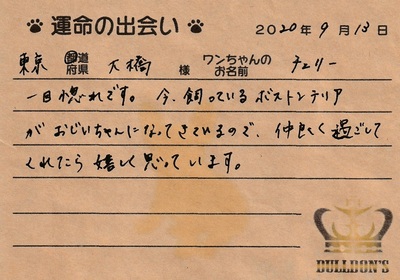 運命の出会い 2020年9月13日
東京 都道府県 大橋 様 ワンちゃんのお名前 チェリー
一目惚れです。今、飼っているボストンテリア
がおじいちゃんになってきているので、仲良く過ごして
くれたら嬉しく思っています。
BULLBON'S